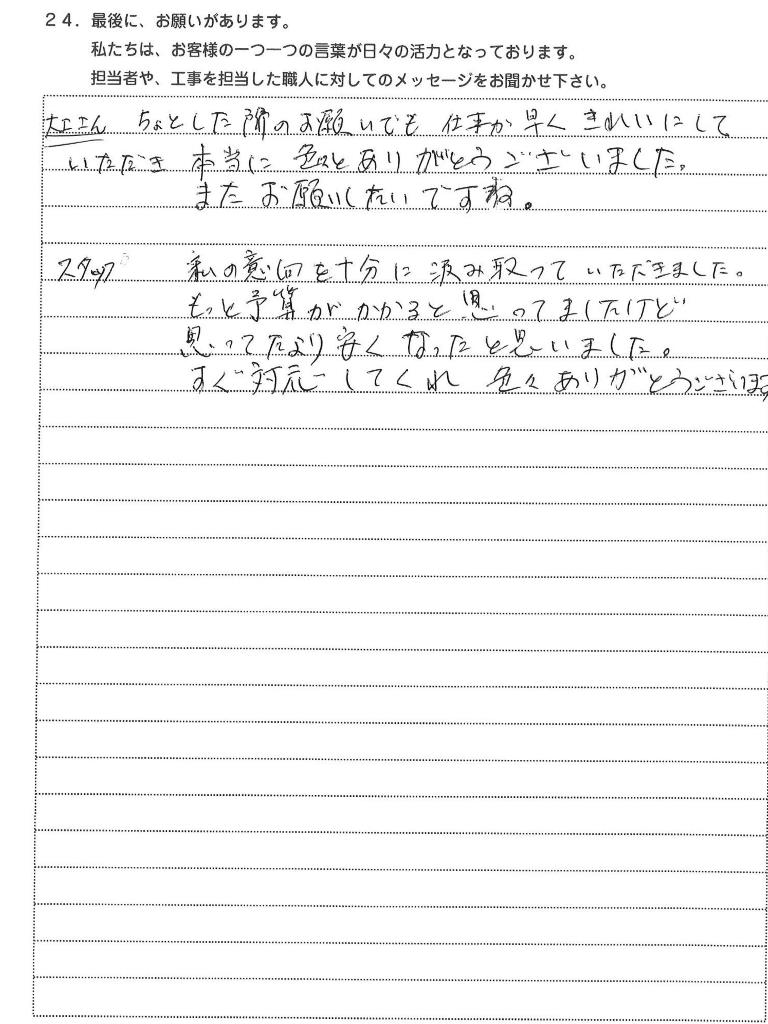 24．最後に、お願いがあります。
私たちは、お客様の一つ一つの言葉が日々の活力となっております。
担当者や、工事を担当した職人に対してのメッセージをお聞かせ下さい。
大工さん ちょとした際のお願いでも 仕事が早く きれいにして
いただき 本当に 色々とありがとうございました。
またお願いしたいですね。
スタッフ 私の意向を十分に汲み取って いただきました。
もっと予算がかかると思ってましたけど
思ってたより安くなったと思いました。
すぐ対応してくれ 色々ありがとうございます